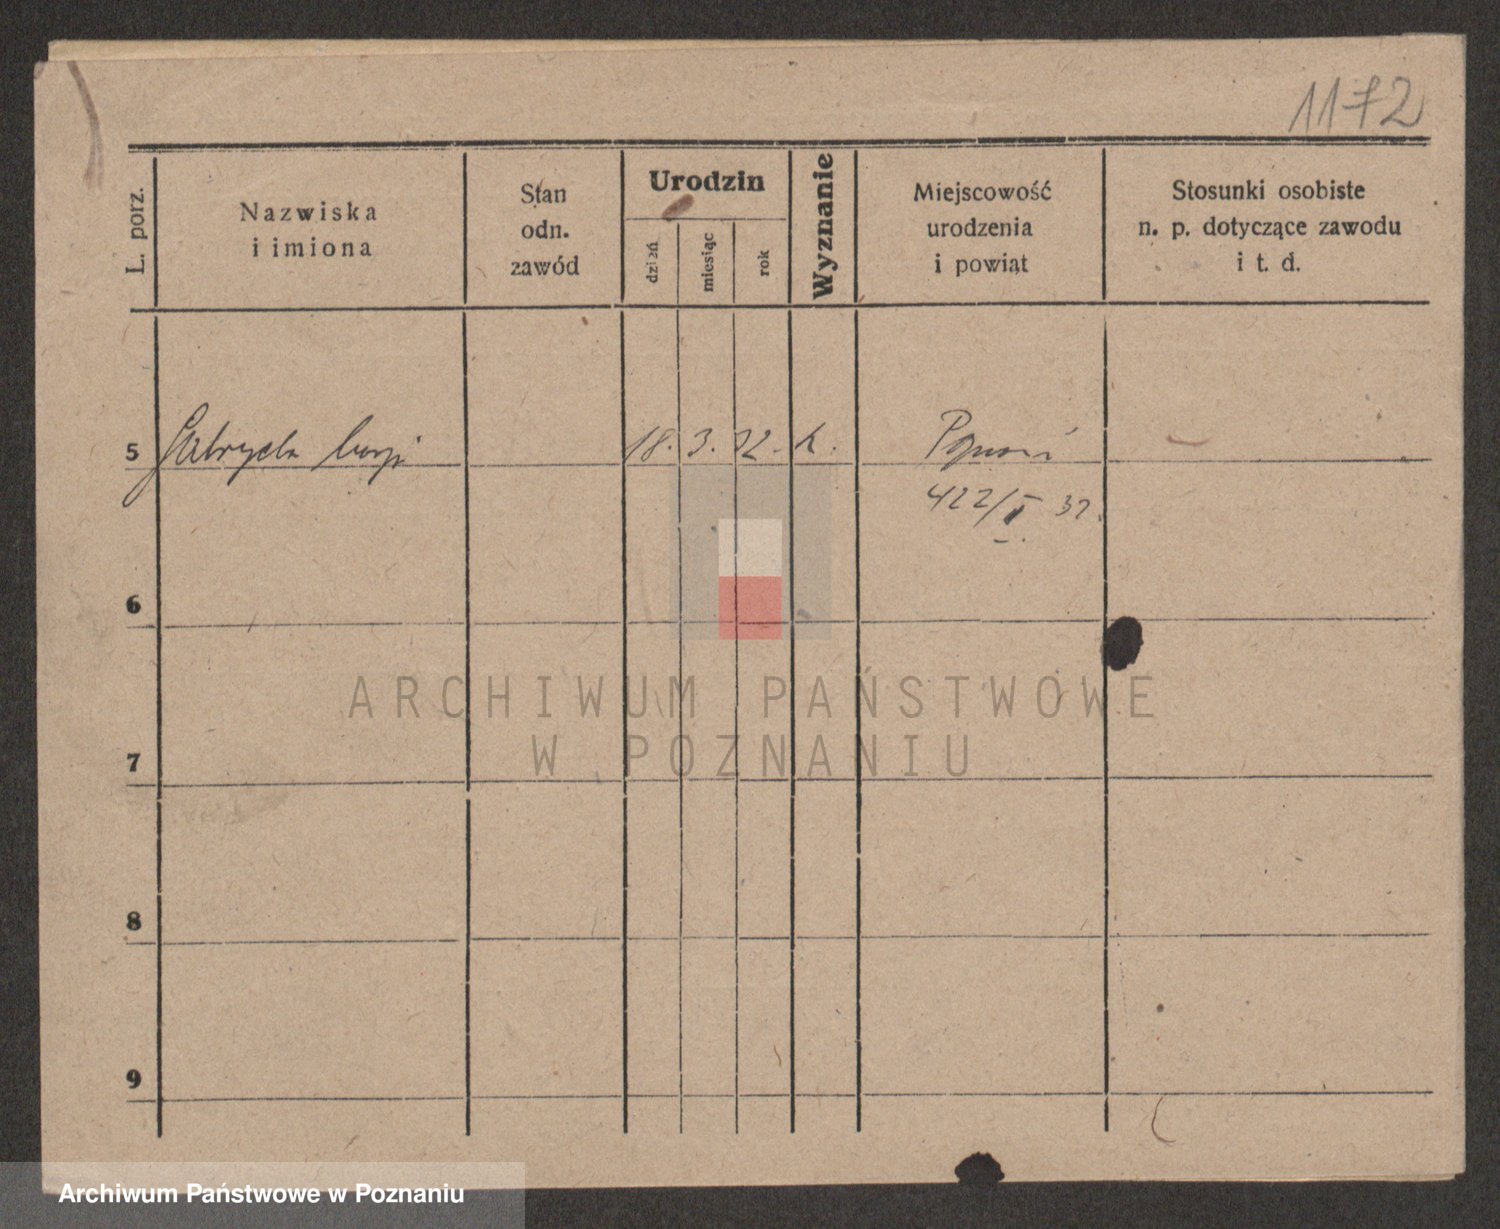 1172
L. porz.
Nazwiska
i imiona
Stan
odn.
zawód
Urodzin
dzień
miesiąc
rok
Wyznanie
Miejscowość
urodzenia
i powiat
Stosunki osobiste
n. p. dotyczące zawodu
i t. d.
5 18. 3. 32. k. Poznań
422/II 32.
6
7
8
9
ARCHIWUM PAŃSTWOWE
W POZNANIU
Archiwum Państwowe w Poznaniu